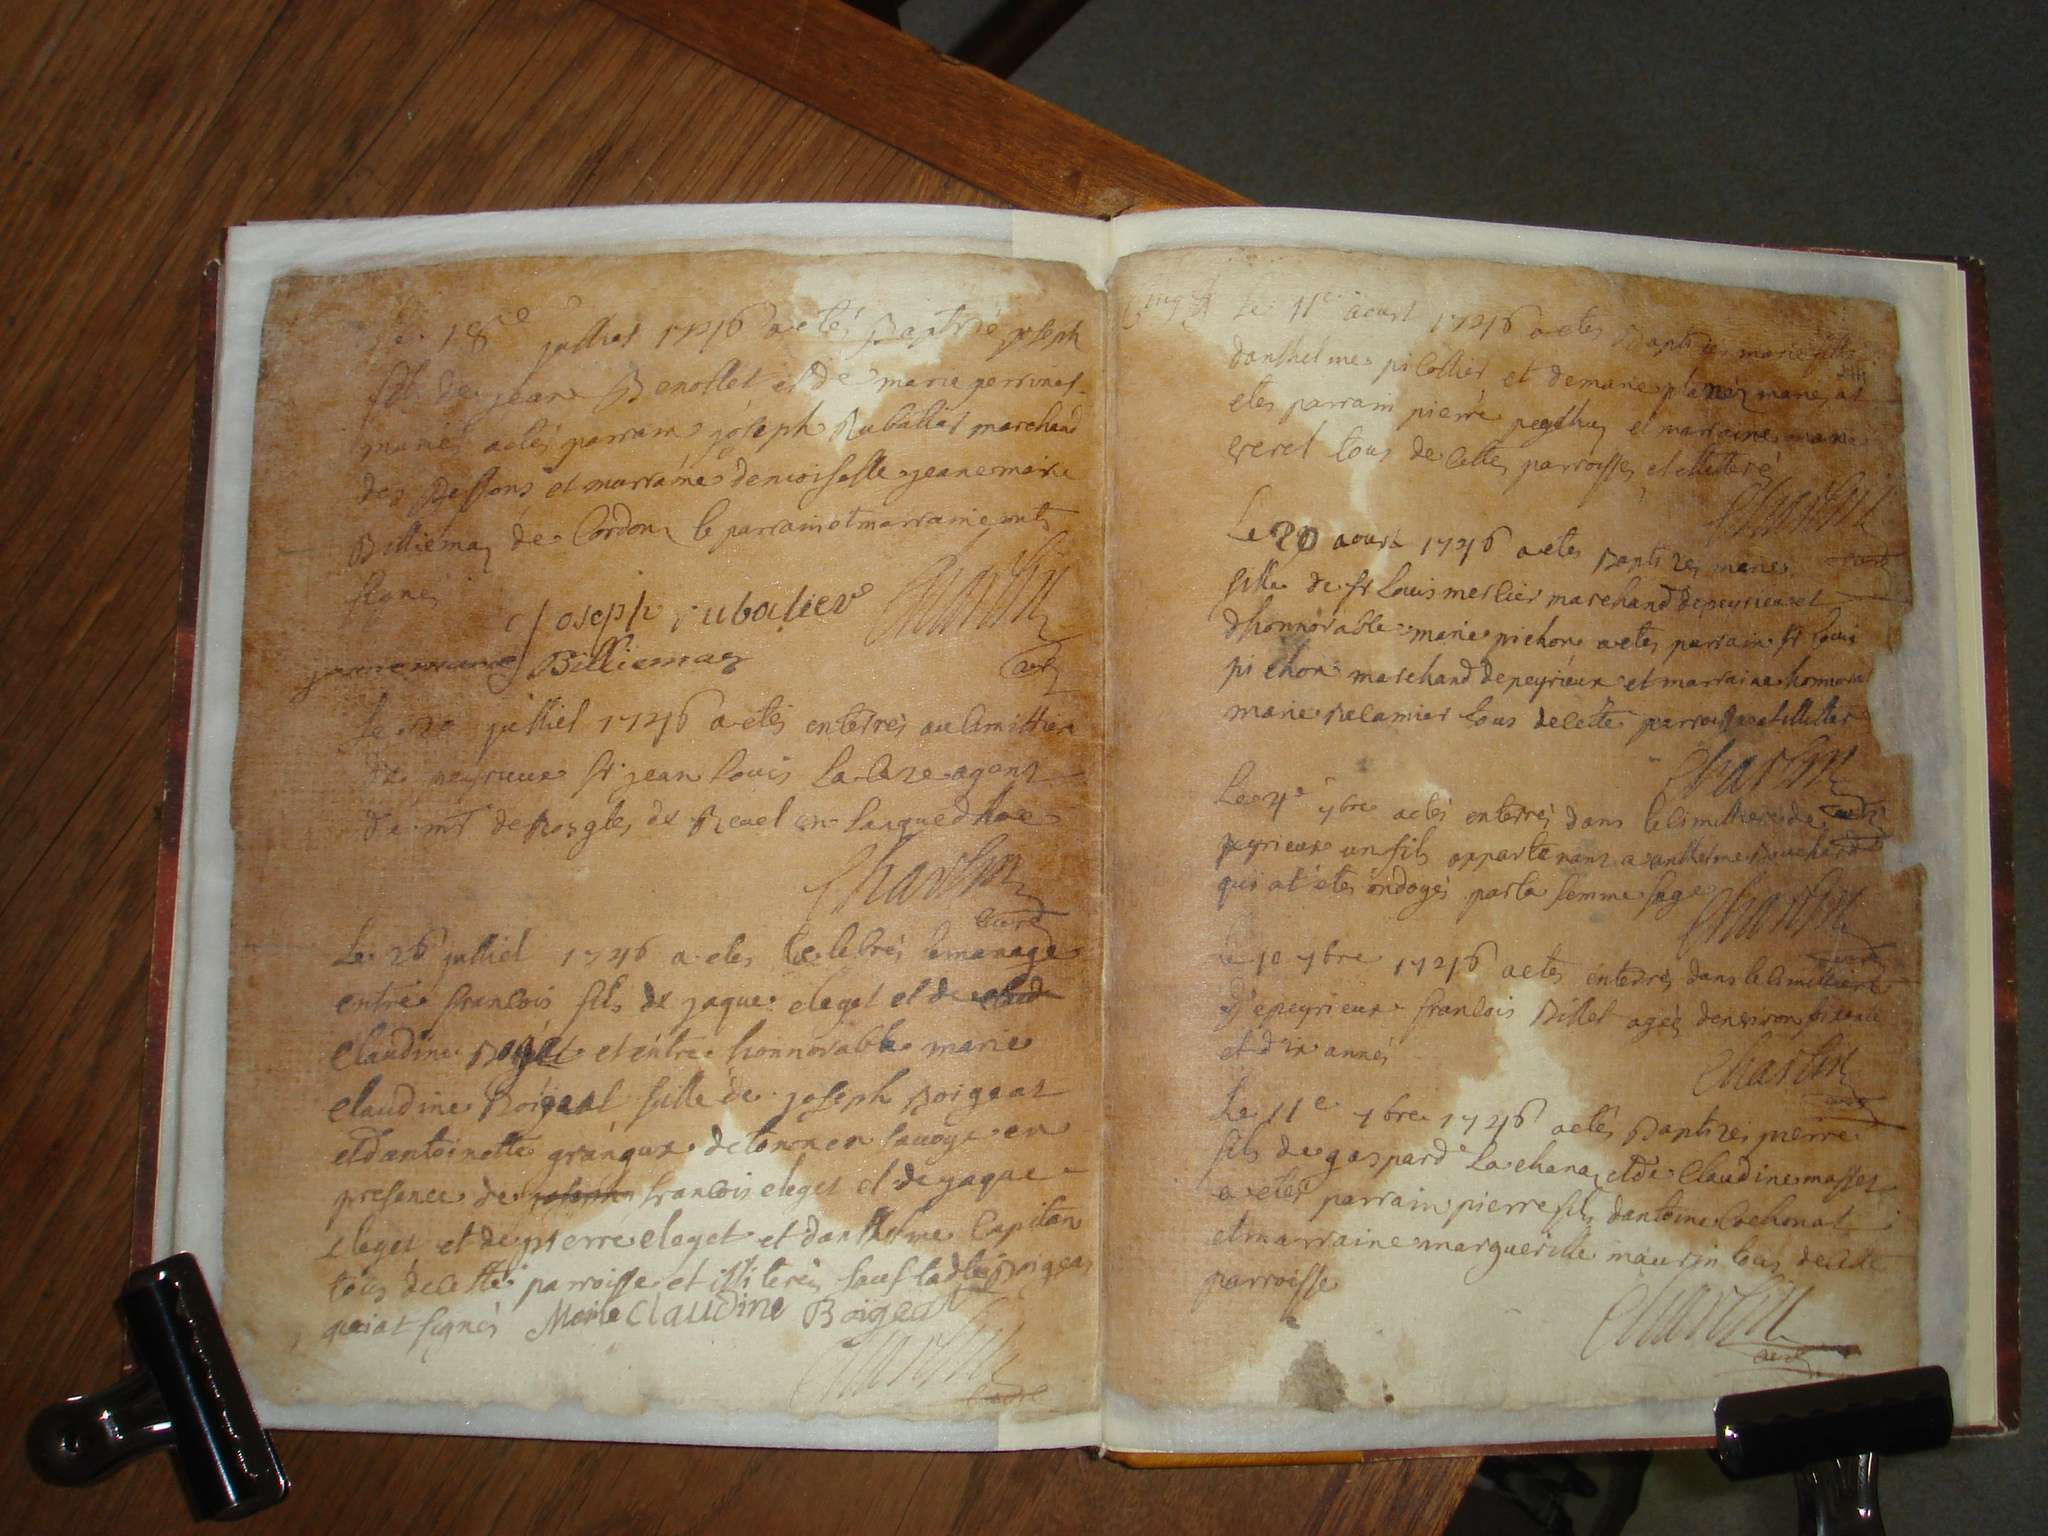 Le 18e julliet 1746 a etés Baptisé joseph
fils de jean Benollet et de marie perrinet
mariés a etés parrain joseph Rubattat marchand
des Dessons et marraine demoiselle jeane marie
Billiemaz de Cordon le parrain et marraine ont
signés
Joseph rubatier Charlin
jeane marie Billiemaz curé
Le 20 julliet 1746 a etés enterrés au Cimittiere
de peyrieux sr jean Louis La
de mr de de Revel en Languedhoc
Charlin
curé
Le 26 julliet 1746 a etes Celebrés le mariage
entre francois fils de jaque eleget et de
Claudine et entre honnorable marie
Claudine Boigeat fille de joseph Boigeat
et dantoinette grangux de tonon en Savoye en
presence de francois eleget et de jaque
eleget et de pierre eleget et danthelme Capitan
tous de cette parroisse et illiterés sauf ladte Boigeat
qui at signés Marie Claudine Boigeat
Charlin
curé
Le 11e aoust 1746 a etes Baptises marie fille
danthelme pi Collier et de marie mariés at
etes parrain pierre et marraine marie
veret tous de Cette parroisse et illiteré
Charlin
curé
Le 20 aoust 1746 a etes Baptises marie
fille de sr Louis merlier marchand de peyrieux et
dhonnorable marie pichon a etes parrain sr Louis
pichon marchand de peyrieux et marraine honnora
marie Relamier tous de Cette parroisse et illitter
Charlin
Le 4e 7bre a etés enterrés dans le Cimittiere de curé
peyrieux un fils appartenant a anthelme
qui at étés ondoyés par la femme sage
Charlin
curé
Le 10 7bre 1746 a etes enterrés dans le Cimittiere
de peyrieux francois Billet agés denviron soixante
et dix annés
Charlin
curé
Le 11e 7bre 1746 a etés Baptisés pierre
fils de gaspard Lachanaz et de Claudine masset
a etés parrain pierre fils dantoine Cochonat
et marraine margueritte maurin tous de Cette
parroisse
Charlin
curé